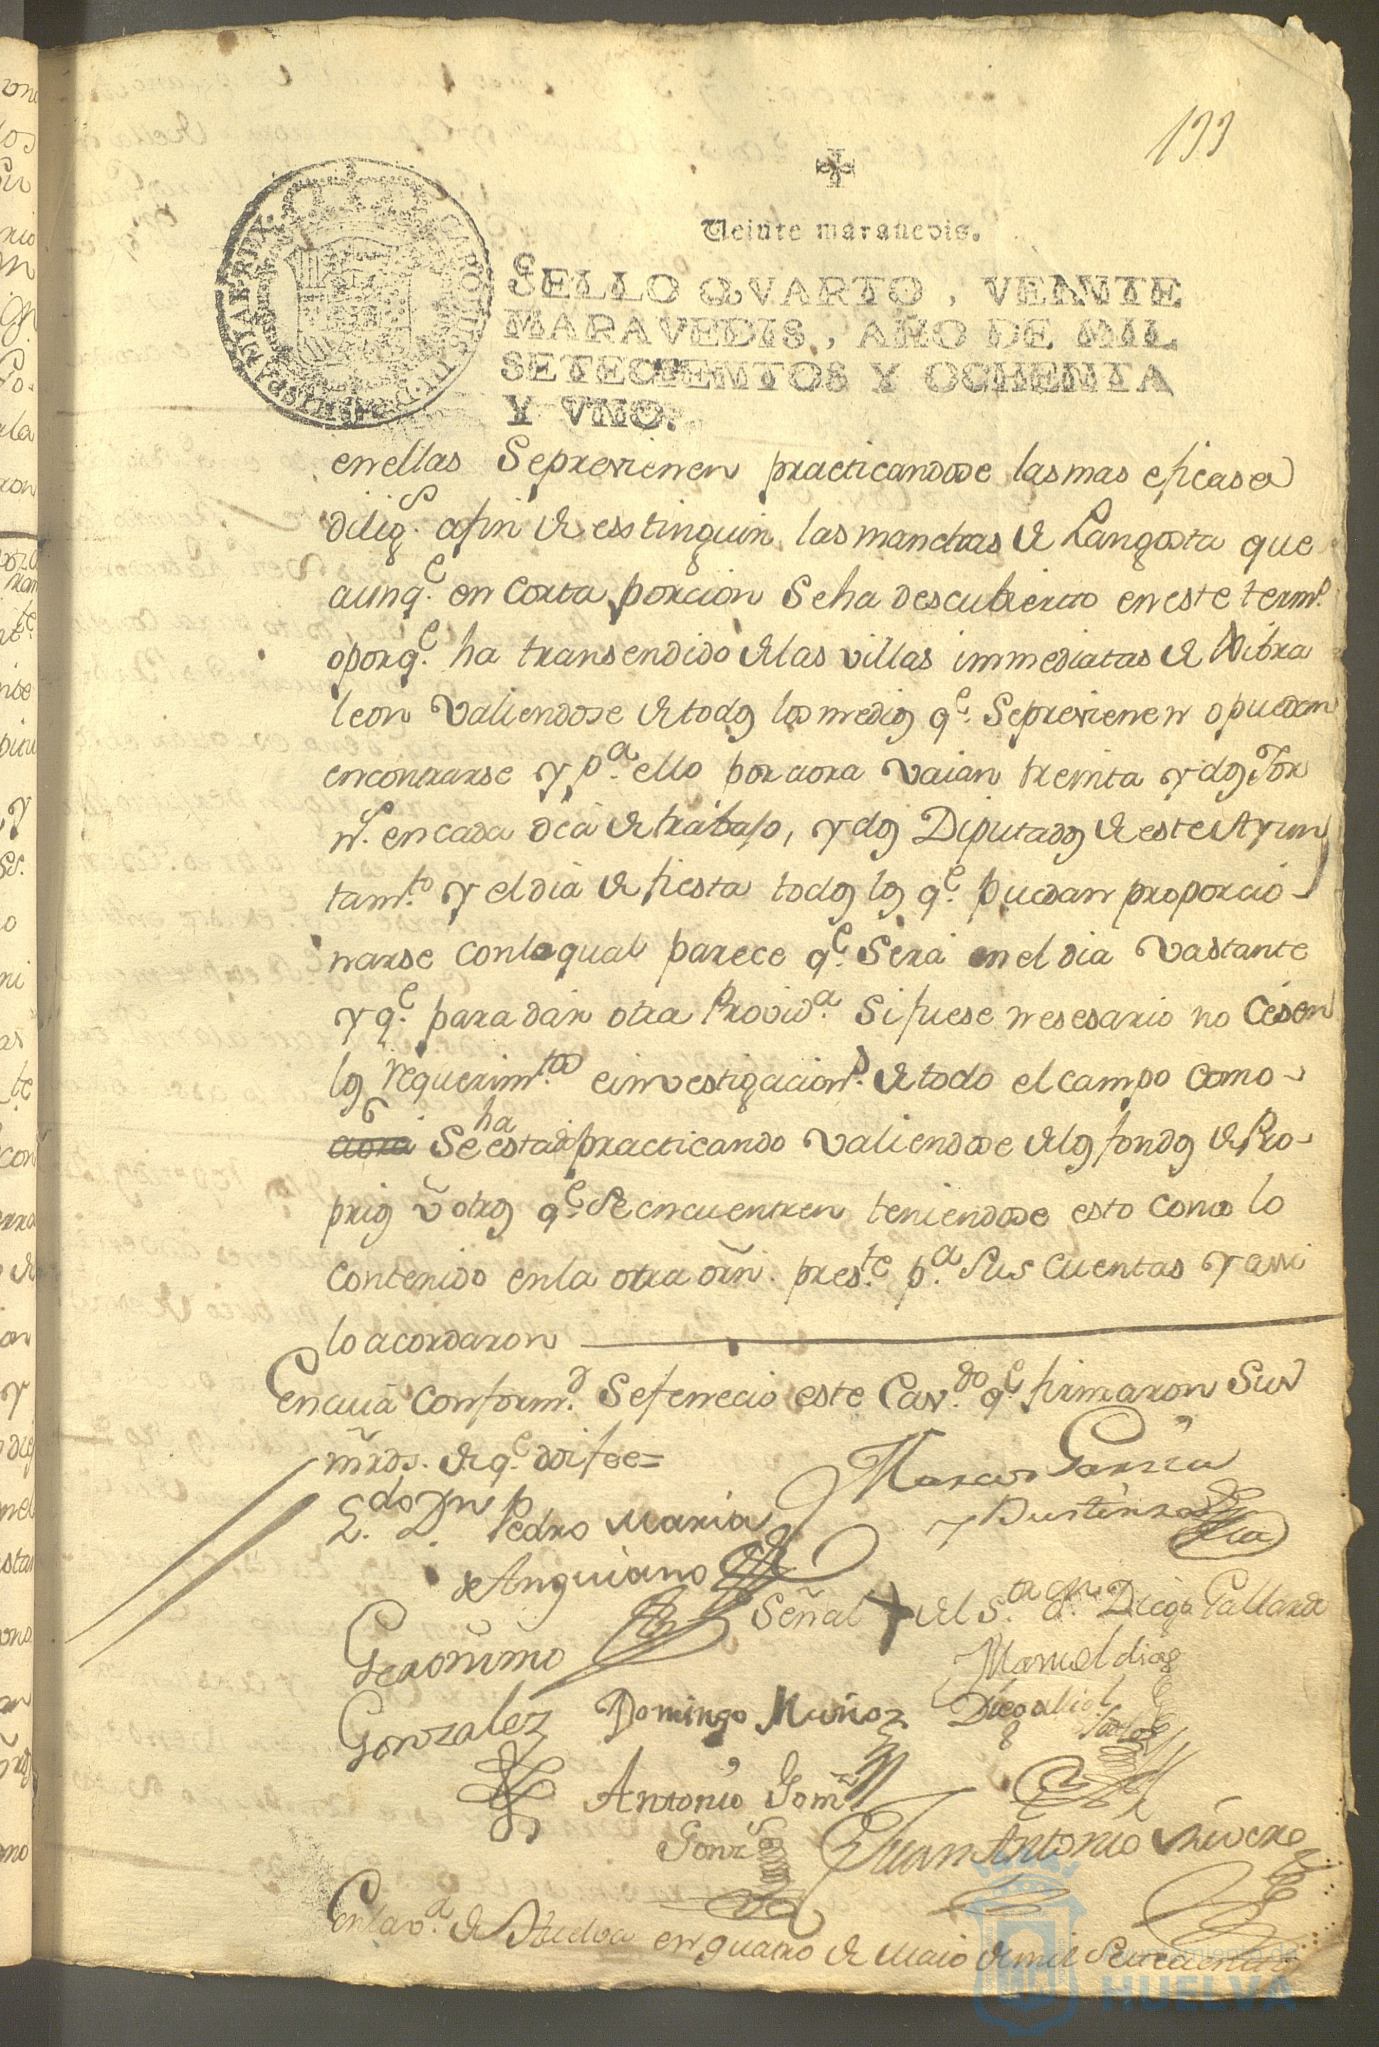 199
Veinte maravedis.
SELLO QVARTO, VEINTE
MARAVEDIS, AÑO DE MIL
SETECIENTOS Y OCHENTA
Y VNO.
en ellas Seprevienen practicandose las mas eficases
dilig.s afin de esstinguir las manchas de Langosta que
aunq.e en Corta porcion Seha descubierto en este term.o
oporq.e ha transendido de las villas immediatas de Nibra
leon Valiendose de todos los medios q.e Seprevienen o puedan
encontrarse y p.a ello por aora vaian treinta y dos Jor
n.s en cada dia de trabajo, y dos Diputados de este Ayun
tam.to y el dia de fiesta todos los q.e puedan proporcio-
narse con lo qual parece q.e Será en el dia vastante
y q.e para dar otra Provid.a Si fuese nesesario no Cesen
los requerim.tos e investigacion.s de todo el campo como-
aora Se ha estado practicando valiendose de los fondos de Pro-
prios ũ otros q.e Se encuentren teniendose esto como lo
contenido en la otra orñ. pres.te p.a Sus Cuentas y assi
lo acordaron
En cuia Conform.d Sefenecio este Cav.do q.e firmaron Sus
mrds. de q.e doi fee=
L.do Dn Pedro Maria
de Anguiano
Marcos Garsia
y Bustinza
Señal + del S.or Dn Diego Gallardo
Geronimo
Gonzalez
Manuel dias
Domingo Muñoz
Antonio Gom.z
Gonz.s
Juan Antonio
En la v.a de Huelva en quatro de Maio de mil Setecientos
Ayuntamiento de
HUELVA